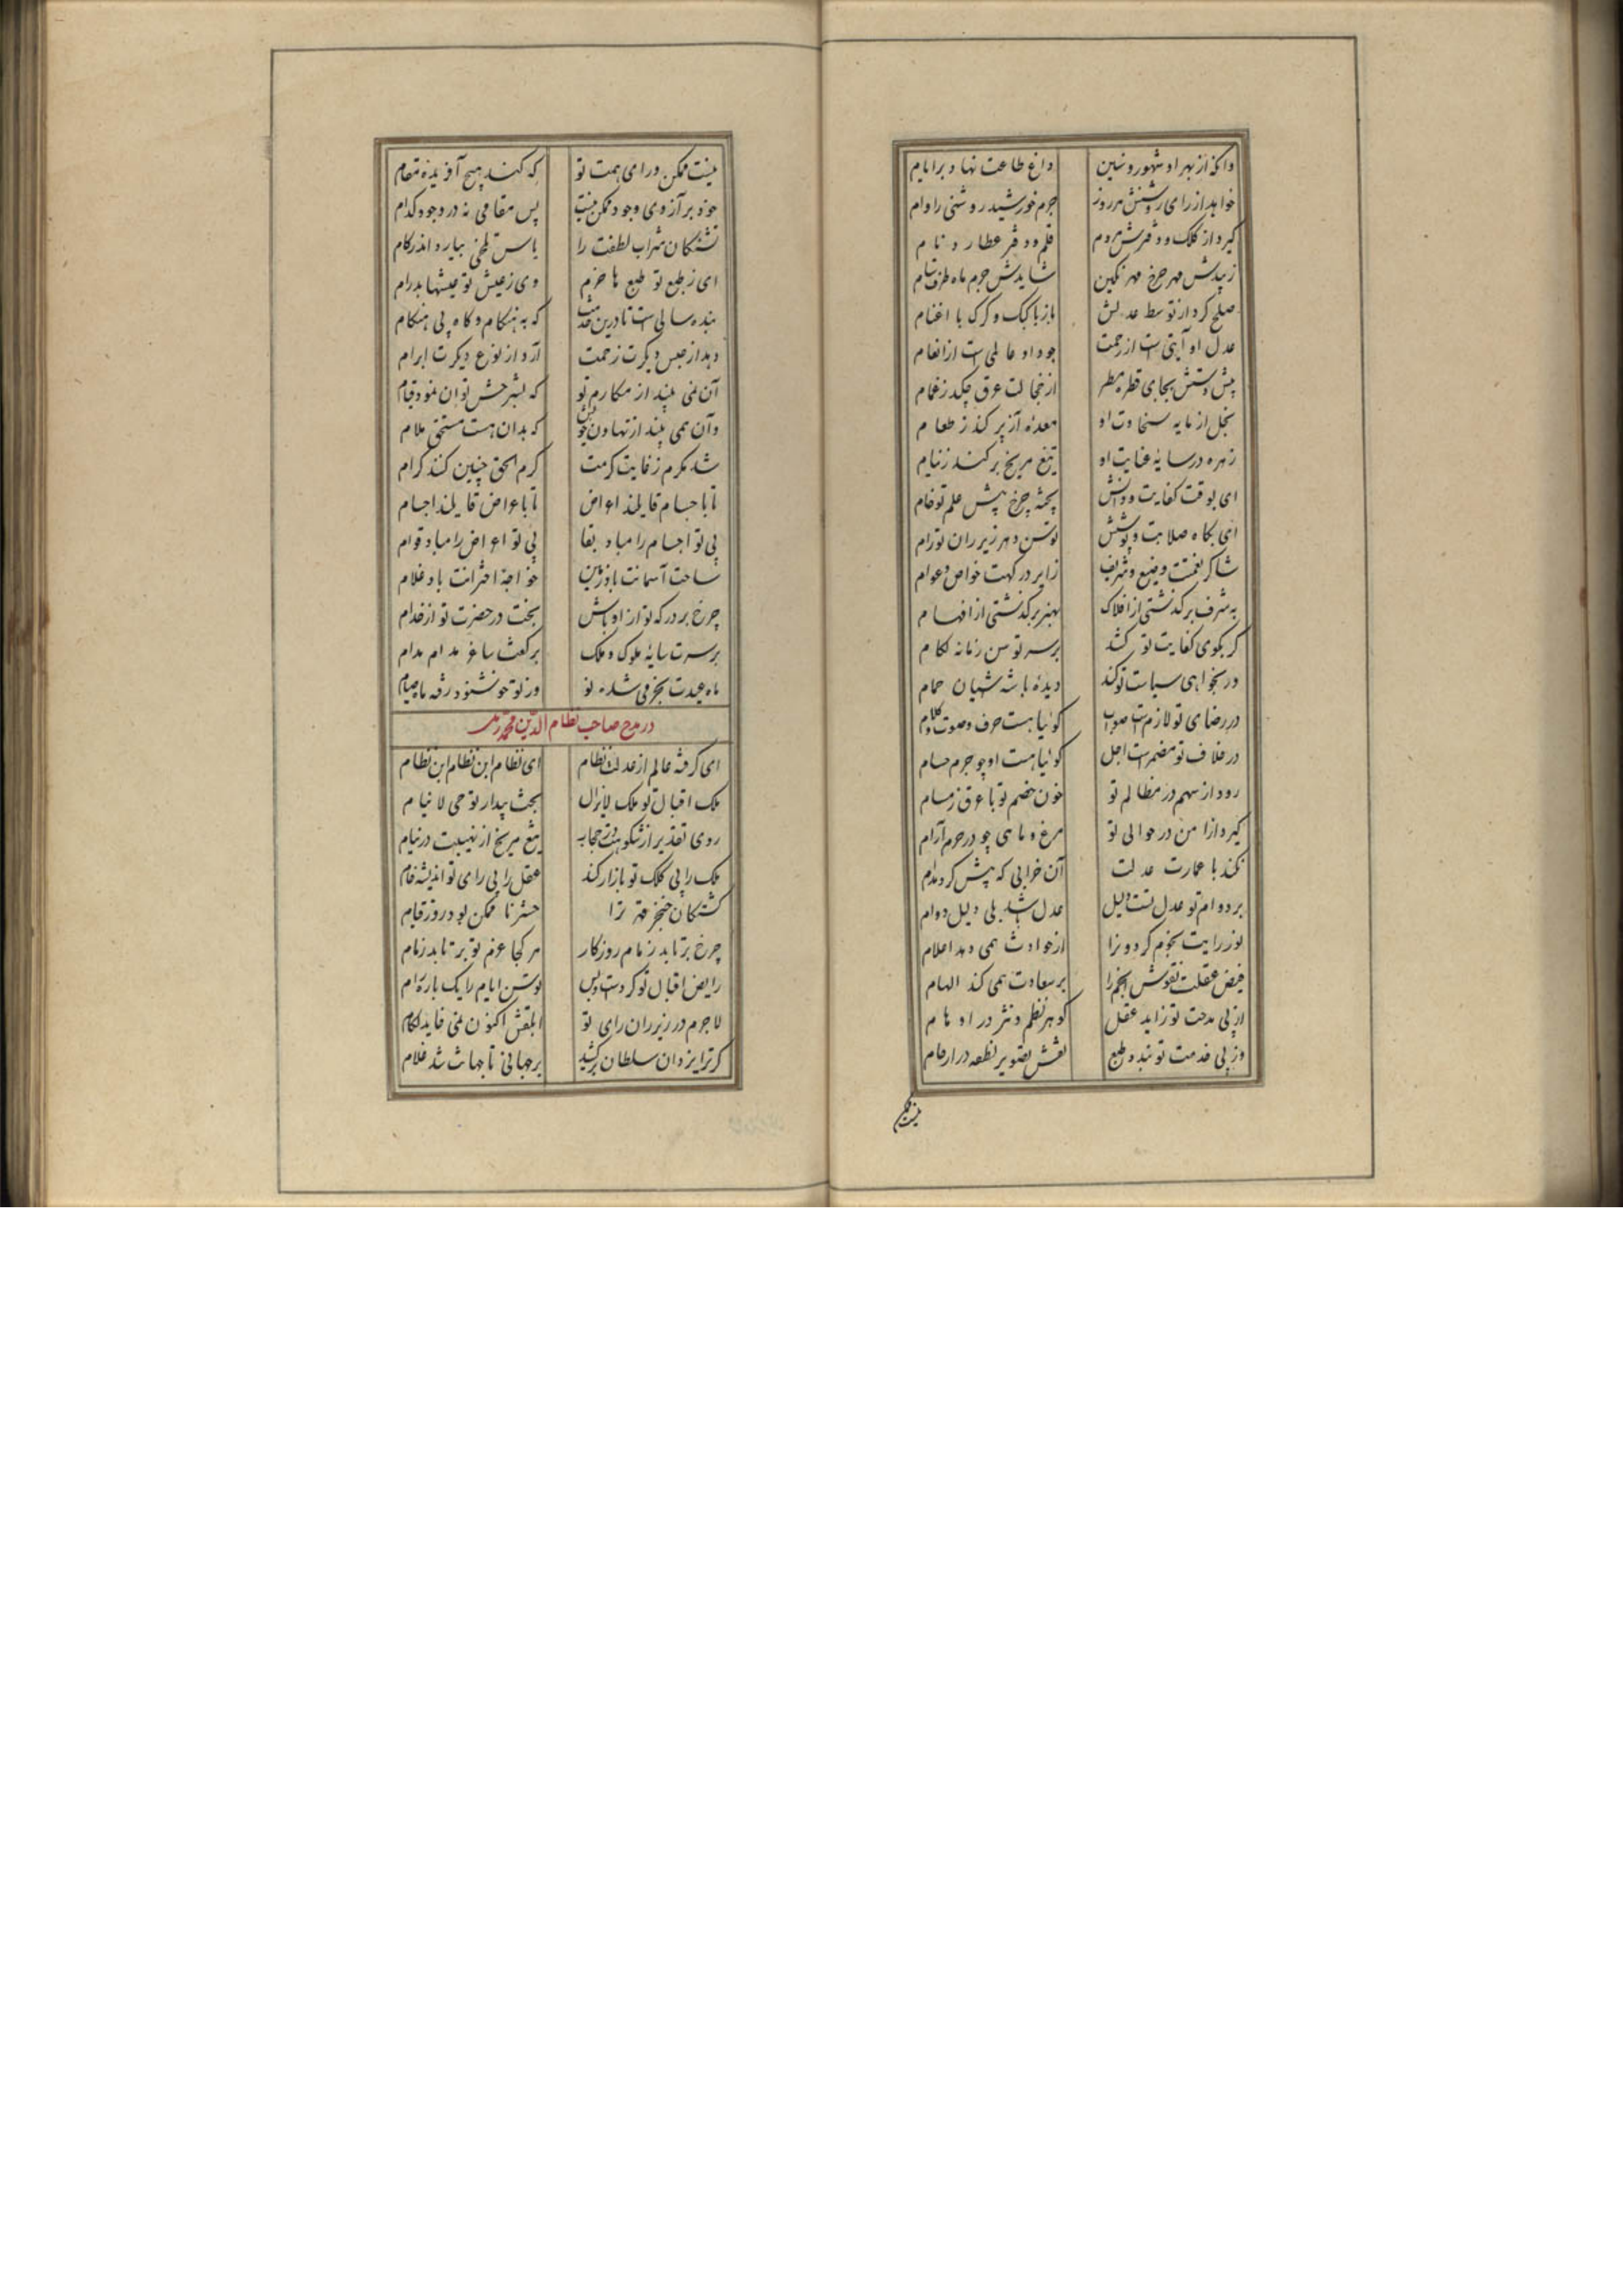 وانکه از بهر او شهور و سنین داغ طاعت نهاد بر ایام
خواهد از رای روشنش هر روز جرم خورشید روشنی را وام
گیرد از کلک و دفترش هر دم قلم و دفتر عطارد نام
زیبدش مهر چرخ مهر نگین شایدش جرم ماه طرف ستام
صلح کرد از توسط عدلش باز با کبک و گرگ با اغنام
عدل او آیتی است از رحمت جود او عالمی است از انعام
پیش دستش بجای قطره مطر از خجالت عرق چکد ز غمام
بخل از مایه سخاوت او معدهٔ آز پر کند ز طعام
زهره در سایهٔ عنایت او تیغ مریخ برکشد ز نیام
ای بوقت کفایت و دانش پختهٔ چرخ پیش علم تو خام
ای بگاه صلابت و پوشش توسن دهر زیر ران تو رام
شاکر نعمتت وضیع و شریف زایر درگهت خواص و عوام
به شرف برگذشتی از افلاک بهنر برگذشتی از افهام
گر بگوی کفایت تو کشد بر سر توسن زمانه لگام
ور بخواهی سیاست تو کند دیدهٔ باشه آشیان حمام
در رضای تو لازم است صواب گوئیا هست حرف و صوت و کلام
در خلاف تو مضمر است اجل گوئیا هست او چو جرم حسام
رود از سهم در مظالم تو خون خصم تو با عرق ز مسام
گیرد از امن در حوالی تو مرغ و ماهی چو در حرم آرام
نکند با عمارت عدلت آن خرابی که پیش کرد مدام
بر دوام تو عدل تست دلیل عدل باشد بلی دلیل دوام
نور رایت نجوم گردونرا از حوادث همی دهد اعلام
فیض عقلت نقوش انجم را بر سعادت همی کند الهام
از پی مدحت تو زاید عقل گوهر نظم و نثر در اوهام
وز پی خدمت تو بندد طبع نقش تصویر نطفه در ارحام
نیست ممکن
نیست ممکن ورای همت تو که کند هیچ آفریده مقام
خود بر آنروی وجود ممکن نیست پس مقامی نه در وجود کدام
تشنگان شراب لطفت را یاس تلخی نیارد اندر کام
ای ز طبع تو طبع ها خرم وی ز عیش تو عیشها پدرام
بنده سالی است تا درین خدمت که به هنگام و گاه بی هنگام
دهد از جنس دیگرت زحمت آرد از نوع دیگرت ابرام
آن نمی بیند از مکارم تو که بشرحش توان نمود قیام
وان همی بیند از تهاون خویش که بدان هست مستحق ملام
شد مکرم ز غایت کرمت کرم الحق چنین کنند کرام
تا باجسام قایلند اعراض تا باعراض قایلند اجسام
بی تو اجسام را مباد بقا بی تو اعراض را مباد قوام
ساحت آسمانت باد زمین خواجهٔ اخترانت باد غلام
چرخ بر درگه تو از اوباش بخت در حضرت تو از خدام
بر سرت سایهٔ ملوک و ملک بر کفت ساغر مدام مدام
ماه عیدت بخرمی شده نو وز تو خوشنود رفته ماه صیام
در مدح صاحب نظام الدین محمد
ای گرفته عالم از عدلت نظام ای نظام ابن نظام ابن نظام
ملک اقبال تو ملک لایزال بخت بیدار تو حی لا ینام
روی تقدیر از شکوهت در حجاب تیغ مریخ از نهیبت در نیام
ملک را بی کلک تو بازار کند عقل را بی رای تو اندیشه خام
کشتگان خنجر قهر ترا حشر ناممکن بود روز قیام
چرخ برتابد زمام روزگار هر کجا عزم تو برتابد زمام
رایض اقبال تو کردست و بس توسن ایام را یکباره رام
لاجرم در زیر ران رای تو ابلقش اکنون نمی خاید لگام
گر ترا یزدان و سلطان برکشید بر جهانی تا جهانت شد غلام